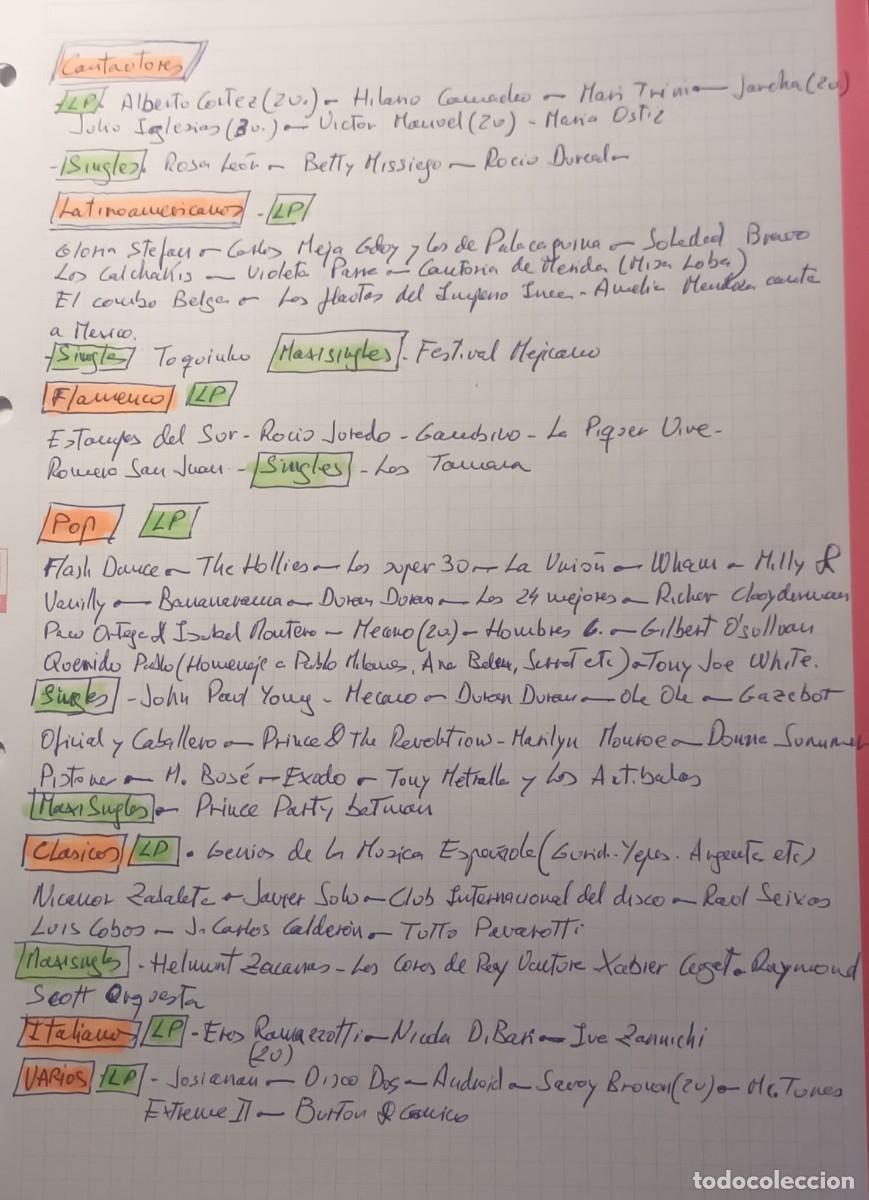 Cantautores
LP. Alberto Cortez (2u.) - Hilario Camacho - Mari Trini - Jarcha (2u)
Julio Iglesias (3u.) - Victor Manuel (2u) - Maria Ostiz
- Singles. Rosa León - Betty Missiego - Rocio Durcal -
Latinoamericanos - LP
Gloria Stefan - Carlos Meja Gdoy y los de Palacaguina - Soledad Bravo
Los Calchakis - Violeta Parra - Cantoria de Merida (Misa Loba)
El combo Belga - Los flautas del Imperio Inca - Amelia Mendoza canta
a Mexico.
- Singles Toquinho Maxisingles - Festival Mejicano
Flamenco LP
Estampas del Sur - Rocio Jurado - Gambino - La Piquer Vive -
Romero San Juan - Singles - Los Tamara
Pop LP
Flash Dance - The Hollies - Los super 30 - La Unión - Wham - Milly &
Vanilly - Bananarama - Duran Duran - Los 24 mejores - Richar Clayderman
Paco Ortega & Isabel Montero - Mecano (2u.) - Hombres G. - Gilbert O'sullvan
Querido Pablo (Homenaje a Pablo Milanes, Ana Belen, Serrat etc) - Tony Joe White.
Singles - John Paul Young - Mecano - Duran Duran - Ole Ole - Gazebot
Oficial y Caballero - Prince & the Revolution - Marilyn Monroe - Donna Summer
Pistones - M. Bosé - Exodo - Tony Metralla y los Antibalas
Maxi Singles - Prince Party batman
Clasicos LP. Genios de la Musica Española (Guridi. Yepes. Argenta etc)
Nicanor Zabaleta - Javier Solo - Club Internacional del disco - Raul Seixas
Luis Cobos - J. Carlos Calderón - Tutto Pavarotti
Maxisingles - Helmunt Zacarias - Los Coros de Ray Ventura Xabier Cuget - Raymond
Scott Orquesta
Italianos LP - Eros Ramazzotti - Nicola Di Bari - Iva Zannichi
(2u)
VARIOS LP - Josianau - Disco Dos - Android - Savoy Brown (2u) - Mc. Tunes
Extreme II - Burton & Cunico
todocoleccion